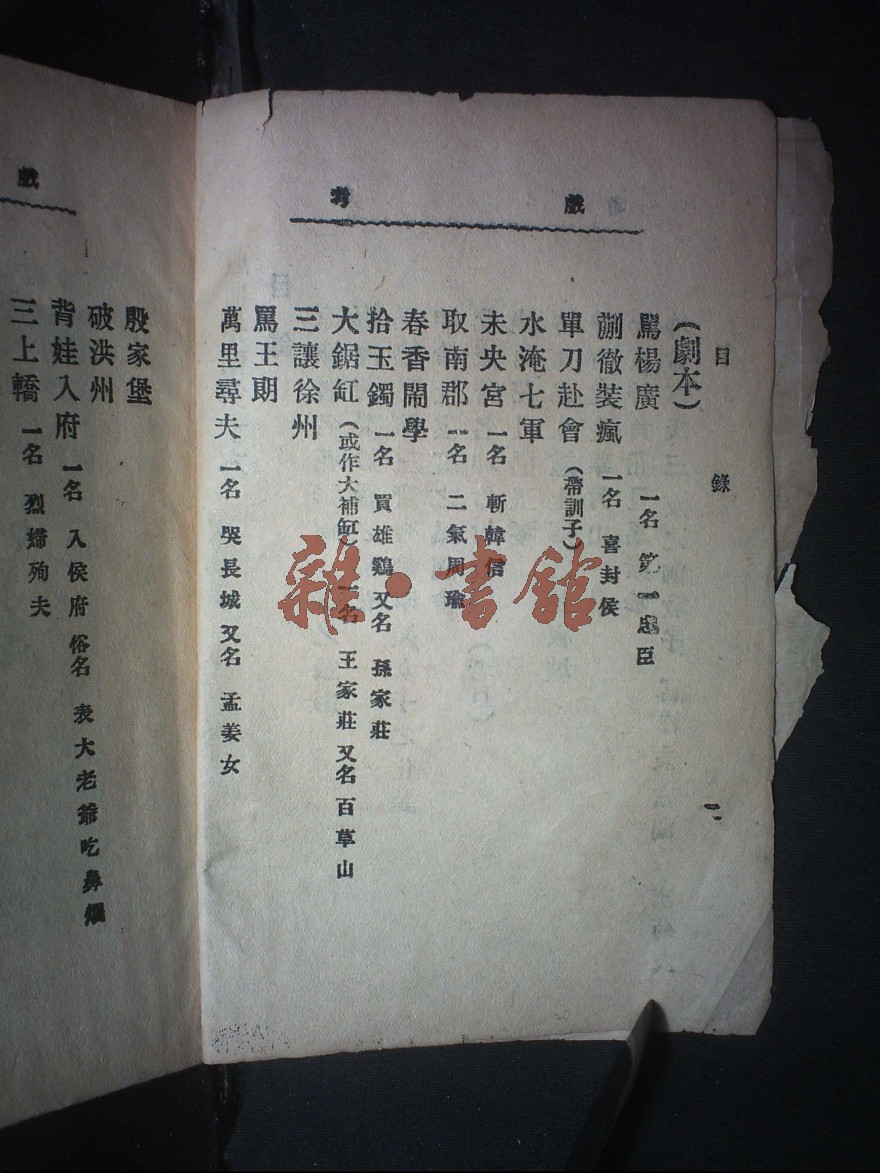 戲考
目錄 一
(劇本)
罵楊廣 一名 第一忠臣
蒯徹裝瘋 一名 喜封侯
單刀赴會 (帶訓子)
水淹七軍
未央宮 一名 斬韓信
取南郡 一名 二氣周瑜
春香鬧學
拾玉鐲 一名 買雄鷄 又名 孫家莊
大鋸缸 (或作大補缸) 一名 王家莊 又名 百草山
三讓徐州
罵王朗
萬里尋夫 一名 哭長城 又名 孟姜女
戲
殷家堡
破洪州
背娃入府 一名 入侯府 俗名 表大老爺吃鼻煙
三上轎 一名 烈婦殉夫
雜·書館